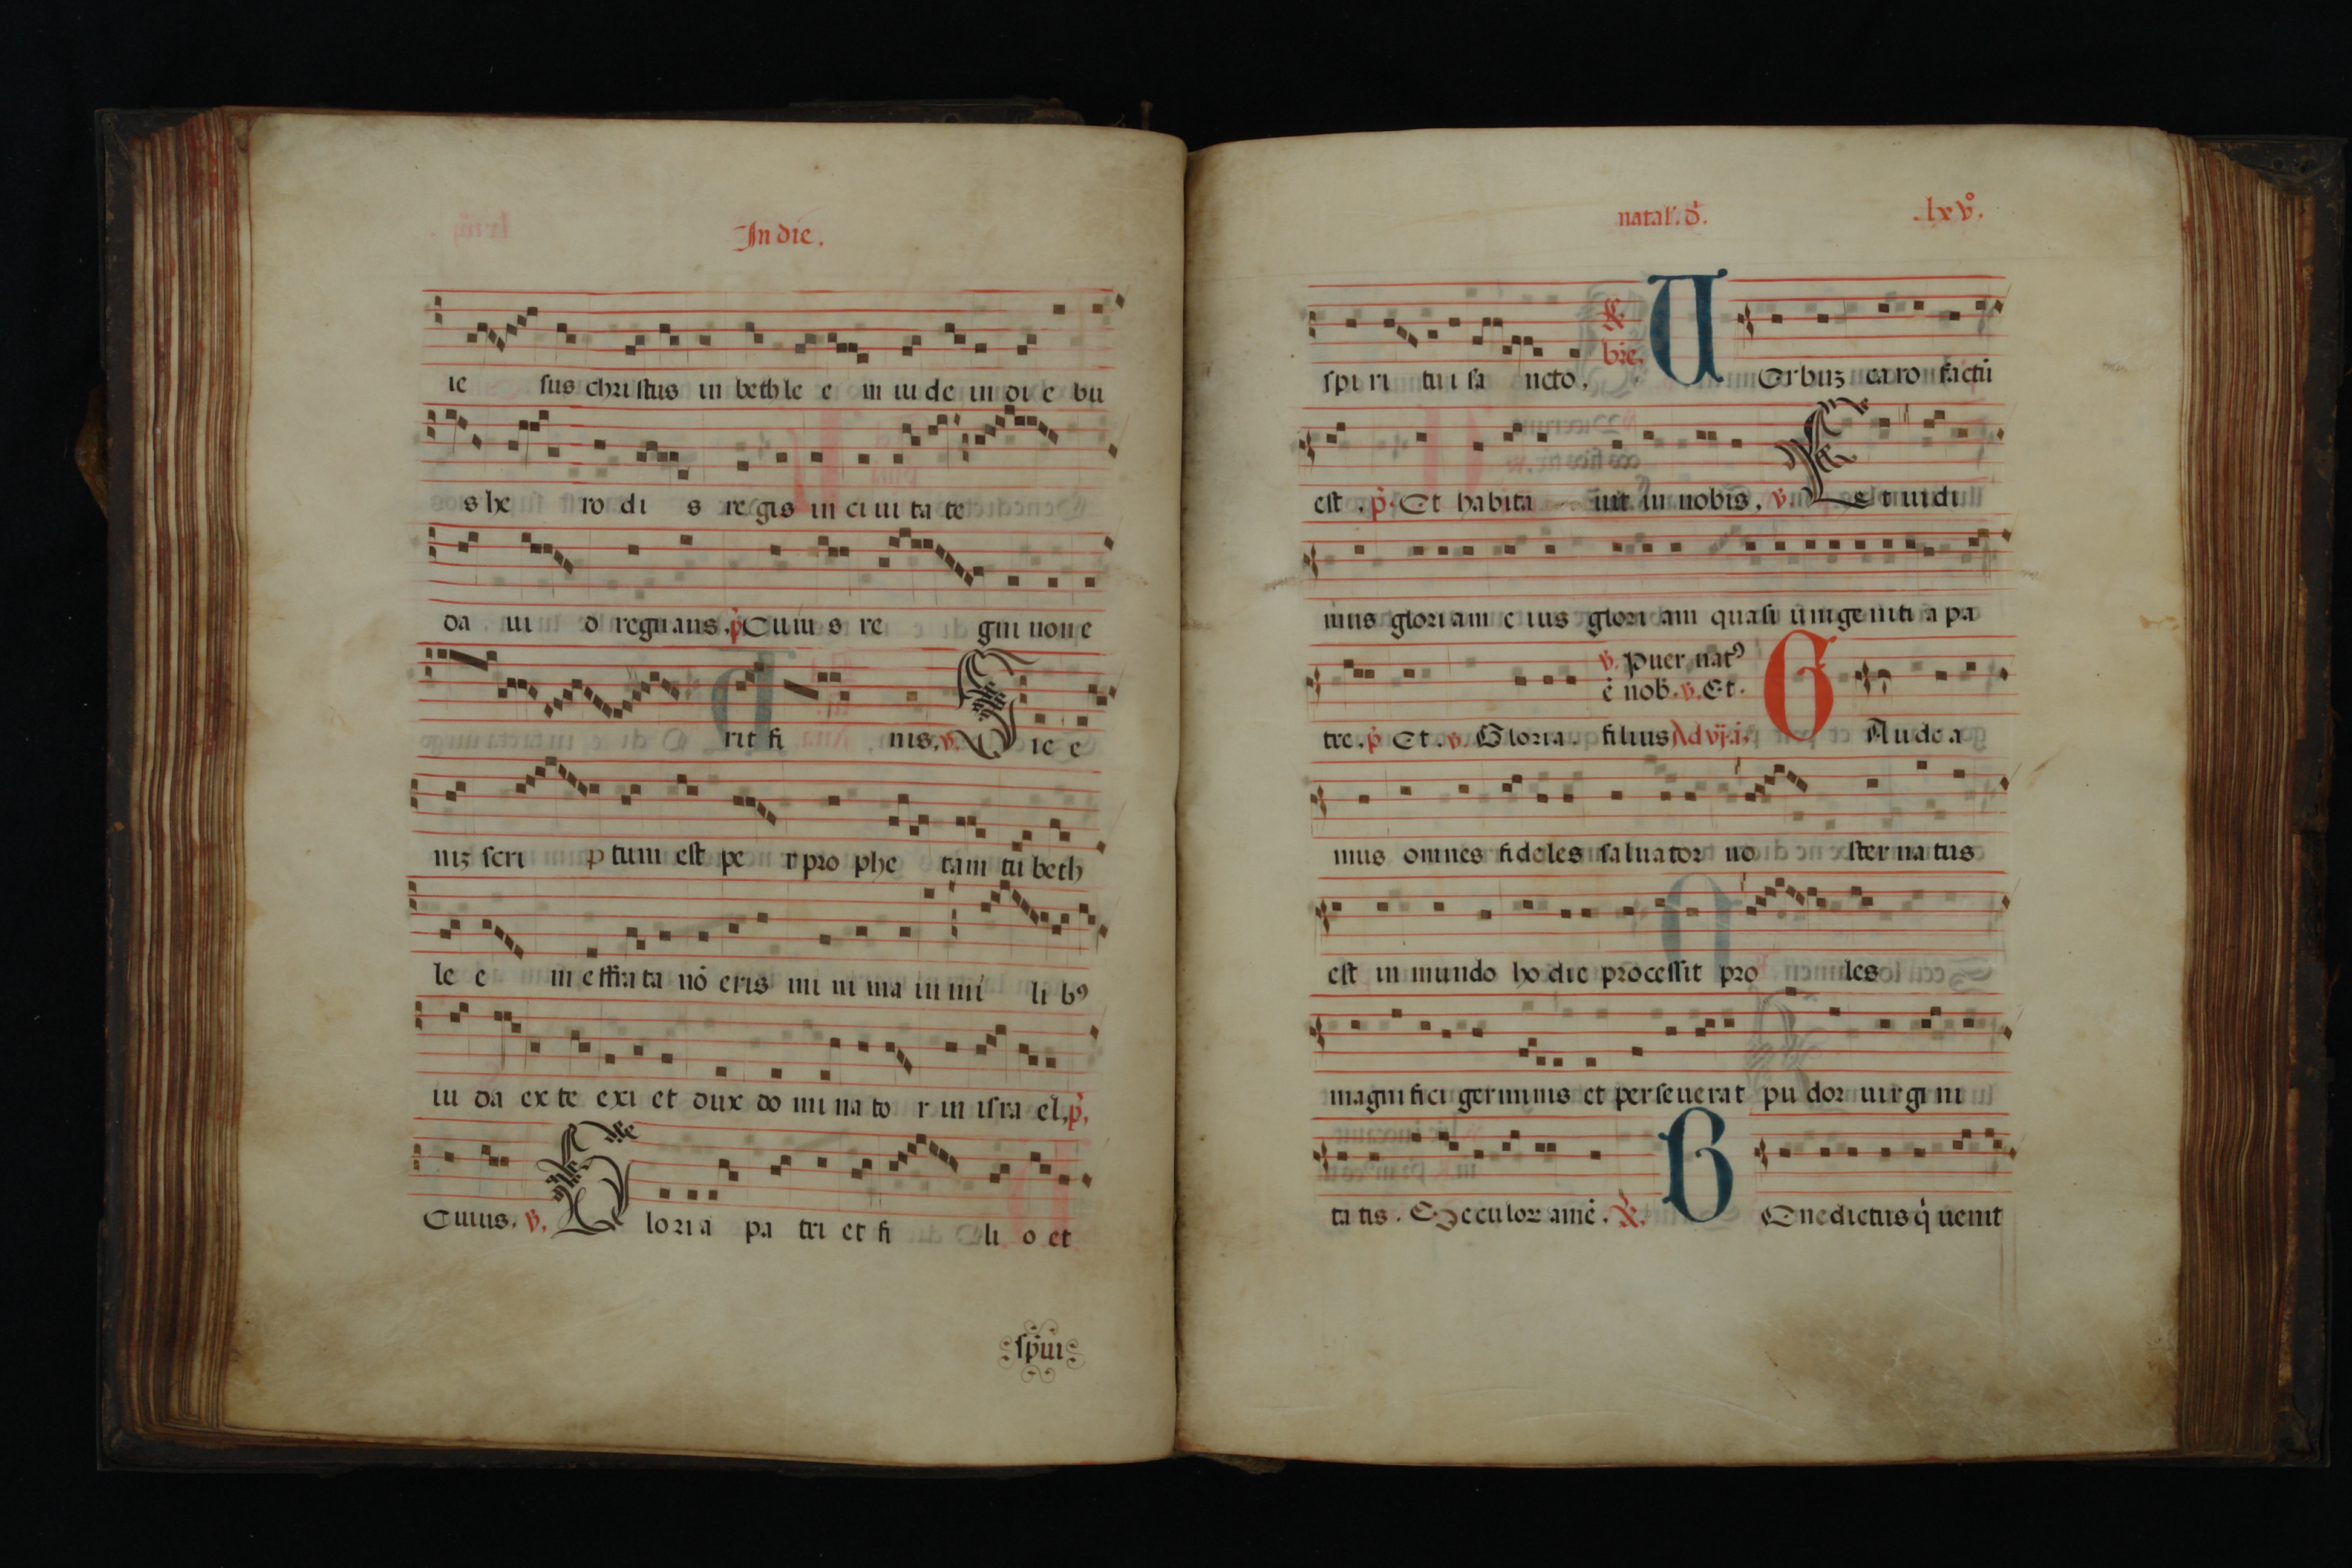 In die.
ie sus christus in beth le e m iu de in di e bu
s he ro di s re gis in ci ui ta te
da ui d regnans. p̄ Cuiu s re gni non e
rit fi nis. v. S ic e
niz scri p tum est pe r pro phe tam tu beth
le e m effrata nō eris mi ni ma in mi li bꝰ
iu da ex te exi et dux do mi na to r in isra el. p̄.
Cuius. v. G loria pa tri et fi li o et
spui
natal'. d'. lxvº.
spi ri tui sa ncto. R. bre. U Erbuz caro factū
est. p̄. Et habita uit in nobis. v. E t uidi
mus gloriam e ius glori am quasi unigeniti a pa
v. Puer natꝰ
ē nob. v. Et.
tre. p̄ Et. v. Gloria. filius Ad vj. ā. G Aude a
mus omnes fideles saluator no ster na tus
est in mundo ho die processit pro les
magni fici germinis et perseuerat pu dor uirgi ni
ta tis. Seculor amē. R. B Enedictus q̇ uenit